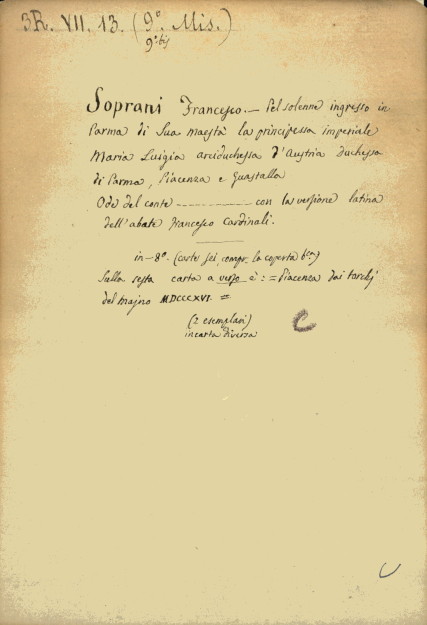 3R. VII. 13. (9.° Mis.)
9.° bis
Soprani Francesco. — Pel solenne ingresso in
Parma di Sua maestà la principessa imperiale
Maria Luigia arciduchessa d'Austria duchessa
di Parma, Piacenza e Guastalla
Ode del conte ———— con la versione latina
dell'abate Francesco Cardinali.
in-8.° (carte sei, compr. la coperta )
Sulla sesta carta a verso è: = Piacenza dai torchj
del Majno MDCCCXVI. =
(2 esemplari)
in carta diversa
C